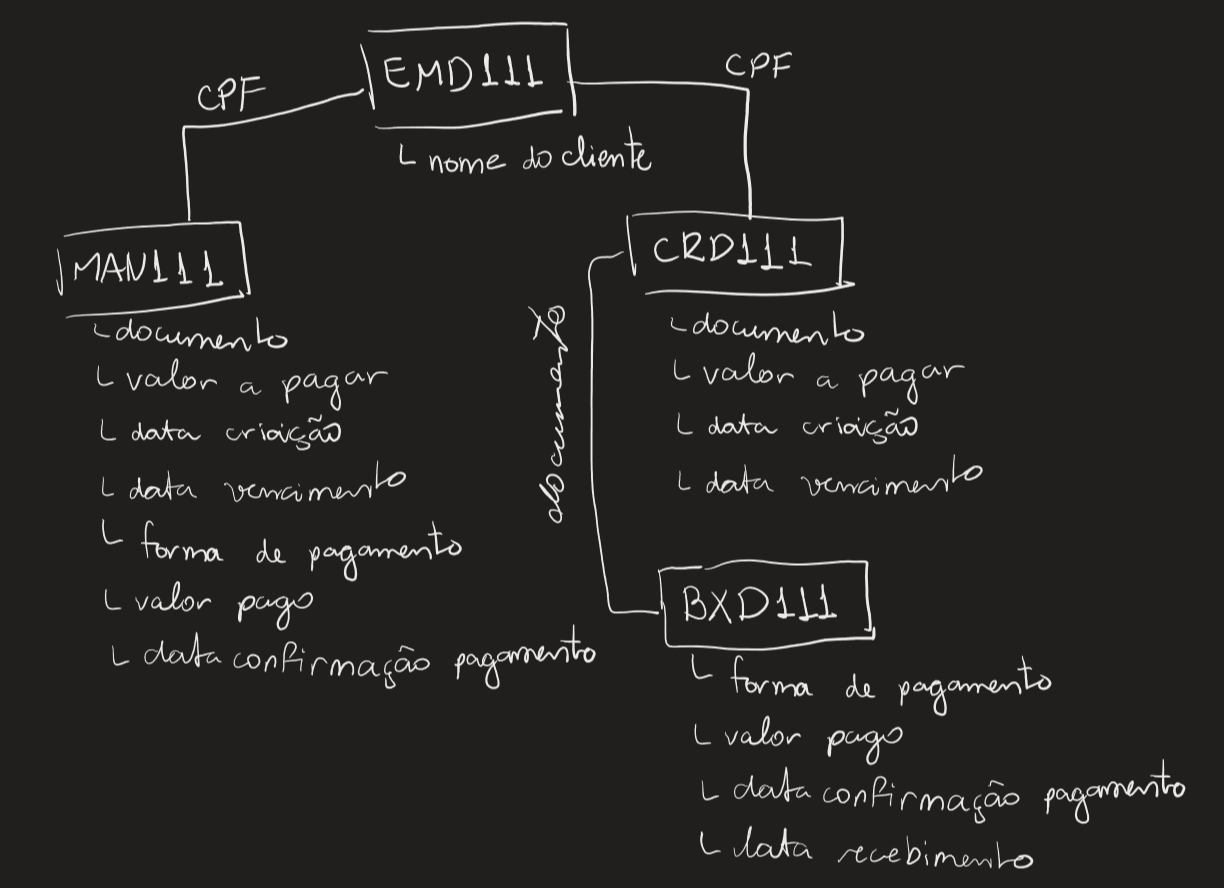 EMD111
CPF
CPF
└ nome do cliente
MAN111
└ documento
└ valor a pagar
└ data criação
└ data vencimento
└ forma de pagamento
└ valor pago
└ data confirmação pagamento
CRD111
└ documento
└ valor a pagar
└ data criação
└ data vencimento
documento
BXD111
└ forma de pagamento
└ valor pago
└ data confirmação pagamento
└ data recebimento